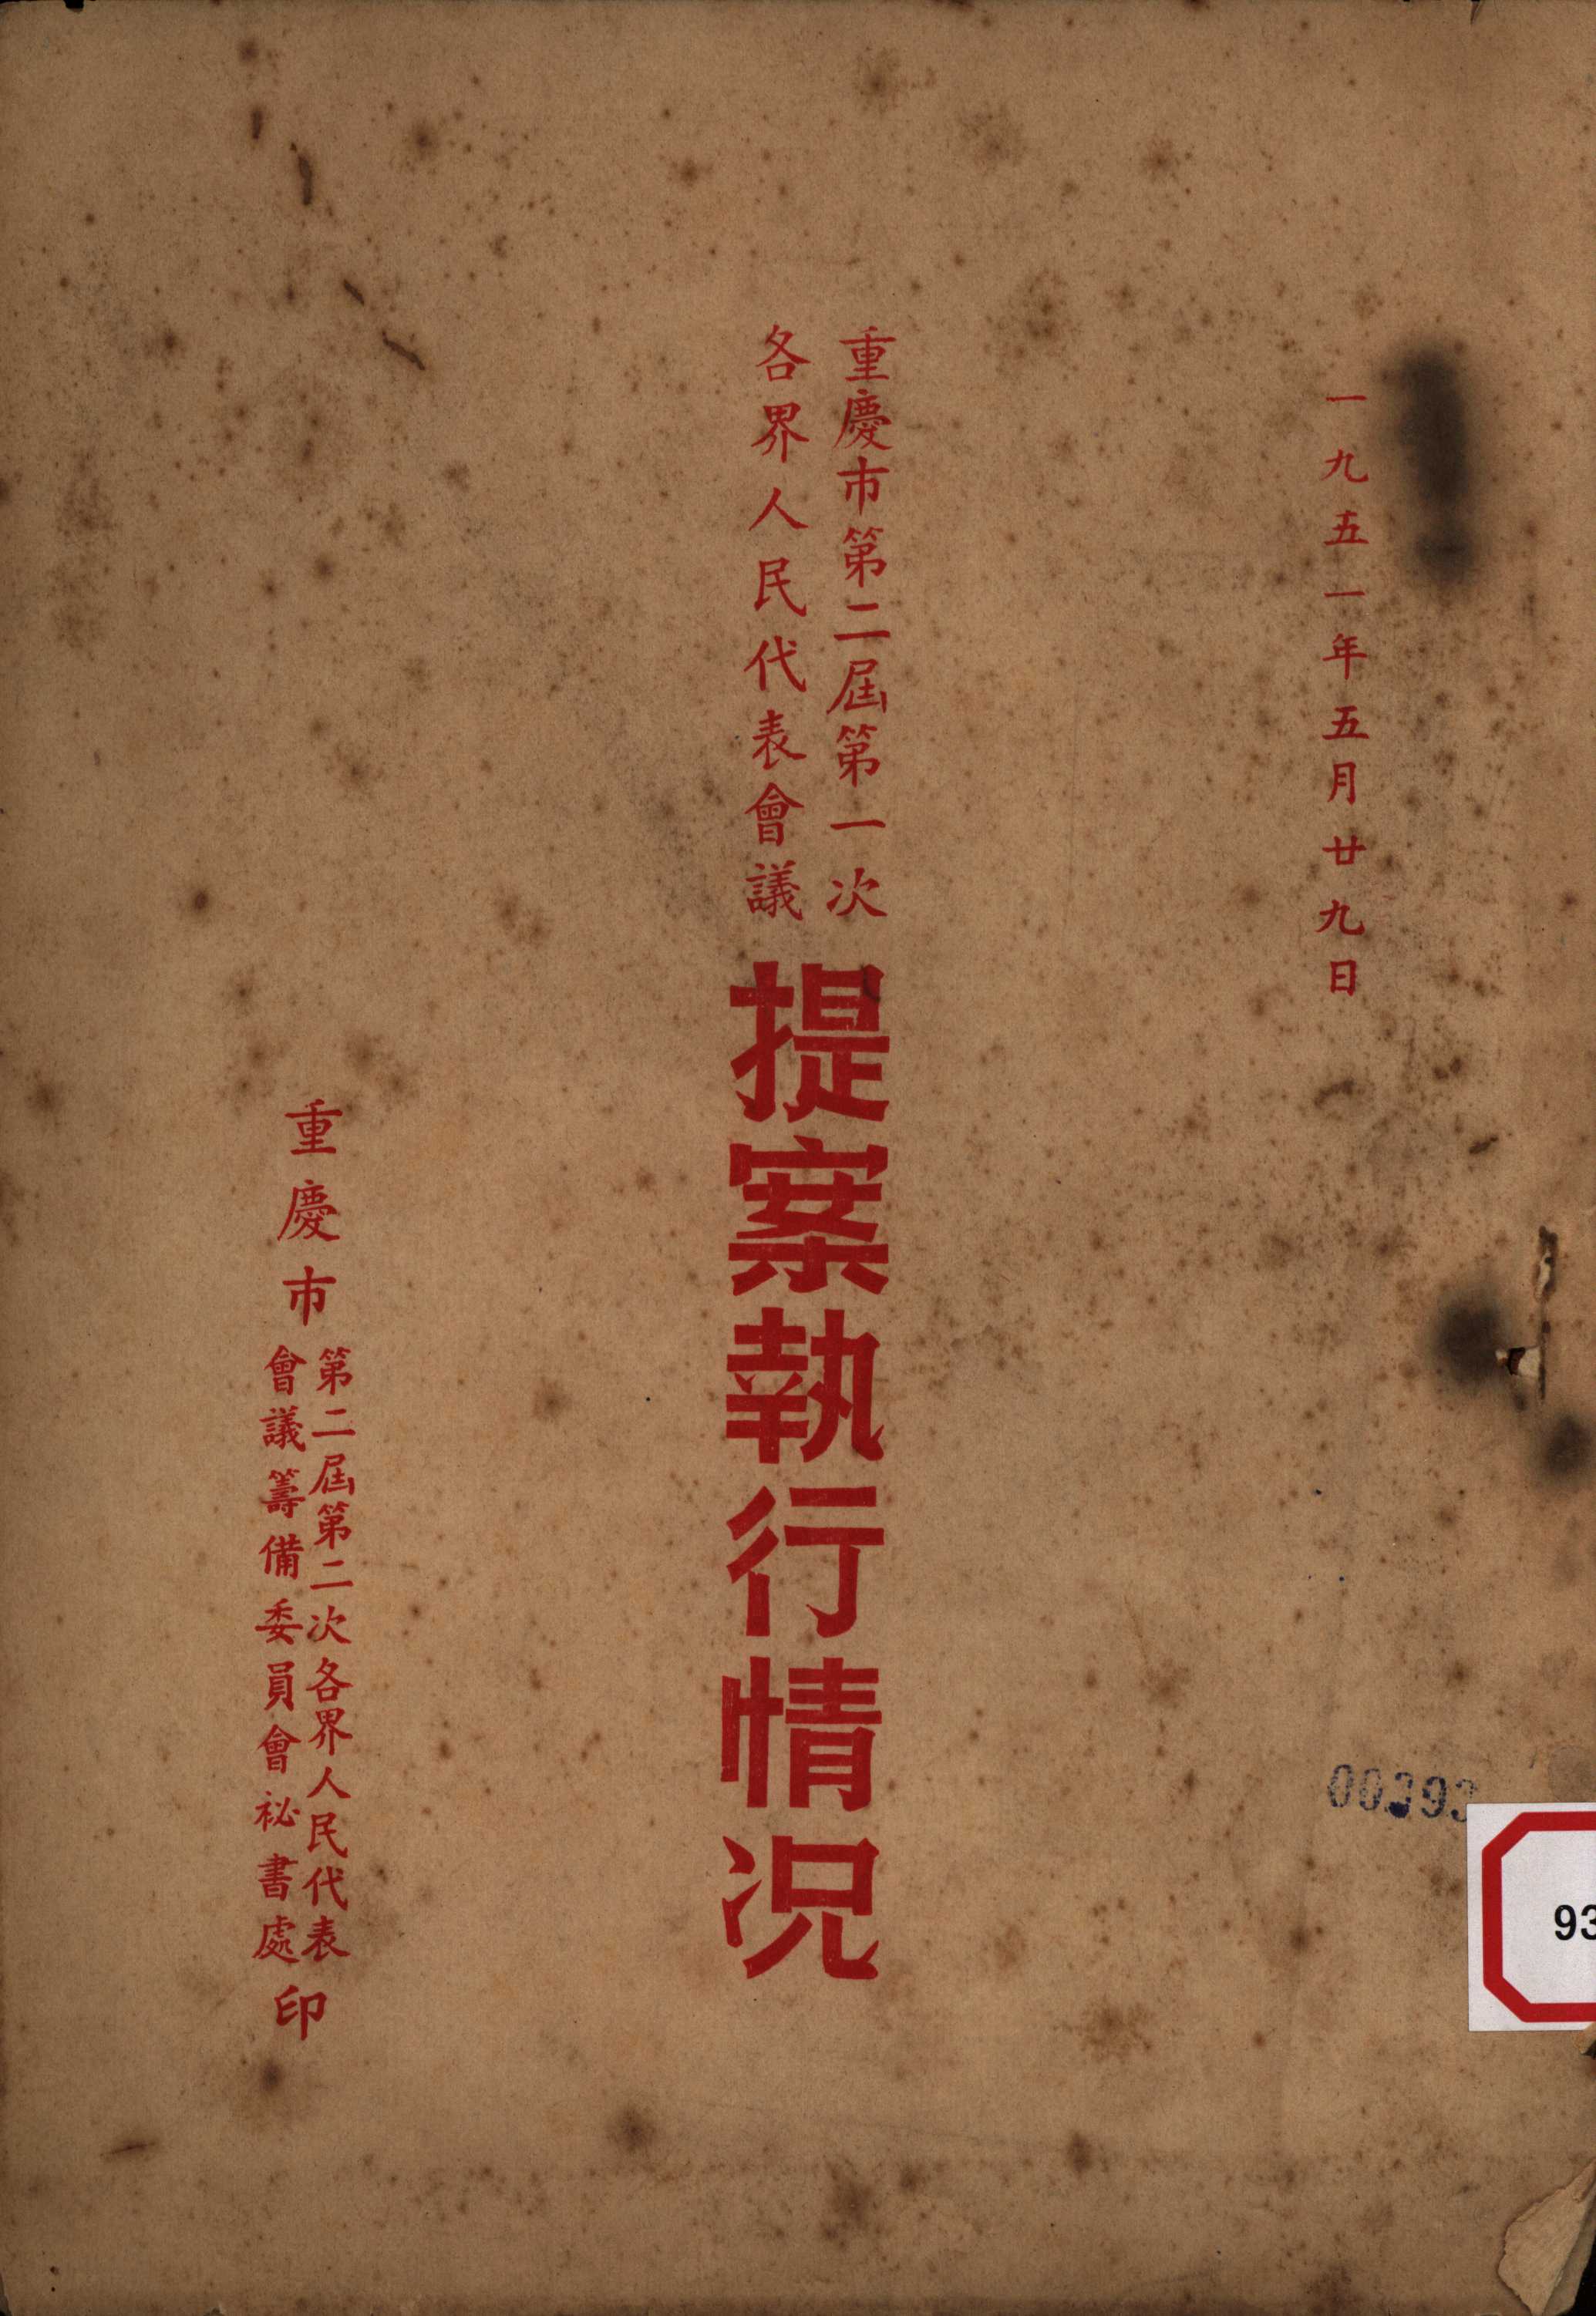 一九五一年五月廿九日
重慶市第二屆第一次
各界人民代表會議
提案執行情况
重慶市
第二屆第二次各界人民代表
會議籌備委員會祕書處
印
93